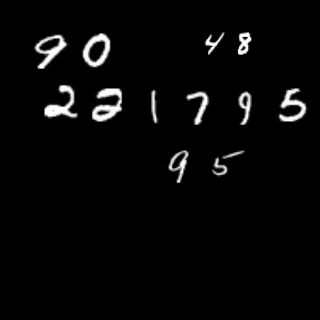 90 48
221795
95